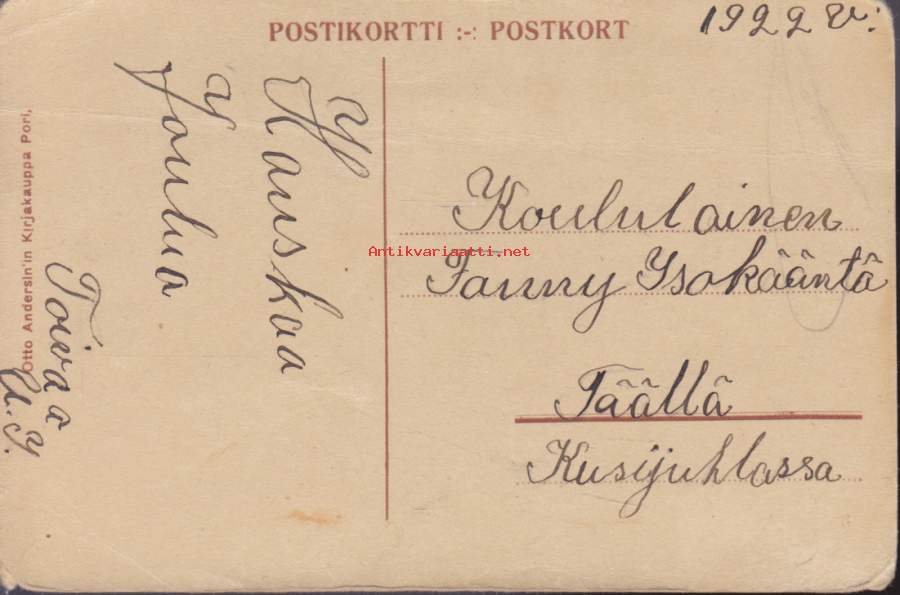 POSTIKORTTI :-: POSTKORT
1922 V:
Hauskaa
Joulua
Toivaa
U. I.
Otto Andersin'in Kirjakauppa Pori.
Koululainen
Fanny Isokääntä
Täällä
Kusijuhlassa
Antikvariaatti.net